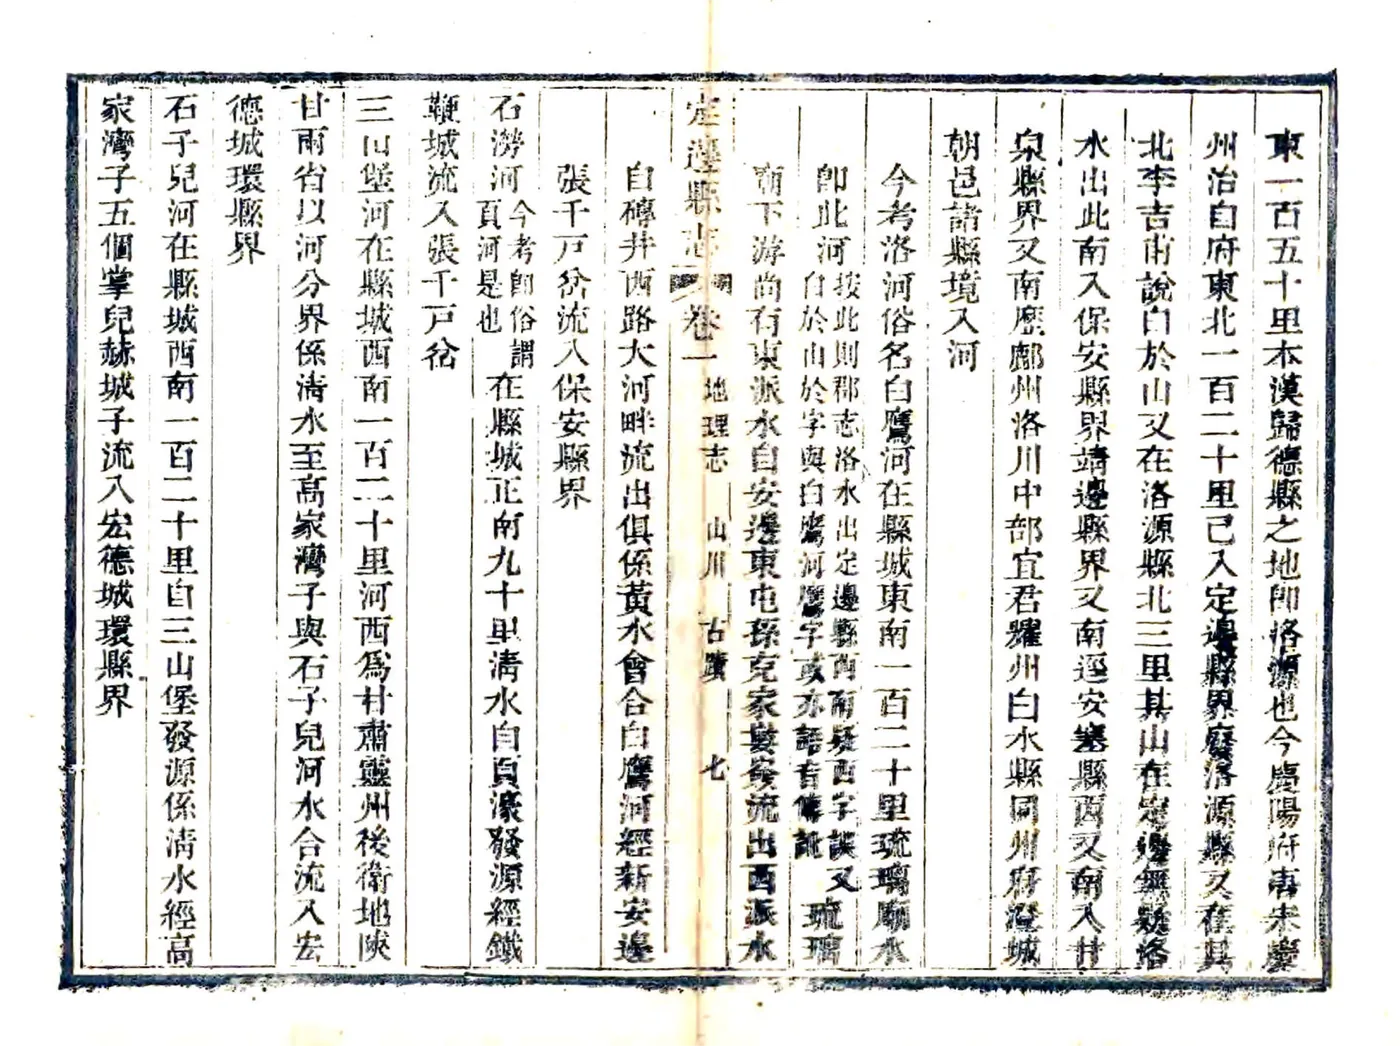 東一百五十里本漢歸德縣之地即洛源也今慶陽府唐宋慶
州治自府東北一百二十里已入定邊縣界廢洛源縣又在其
北李吉甫說白於山又在洛源縣北三里其山在定邊無疑洛
水出此南入保安縣界靖邊縣界又南逕安塞縣西又南入甘
泉縣界又南歷鄜州洛川中部宜君耀州白水縣同州府澄城
朝邑諸縣境入河
今考洛河俗名白鷹河在縣城東南一百二十里琉璃廟水
即此河按此則郡志洛水出定邊縣西南疑西字誤又
白於山於字與白鷹河鷹字或亦語音傳訛琉璃
廟下游尚有東派水自安邊東屯孫克家㟺崾流出西派水
定邊縣志 卷一 地理志 山川 古蹟 七
自磚井西路大河畔流出俱係黃水會合白鷹河經新安邊
張千戶岔流入保安縣界
石澇河今考即俗謂
頁河是也在縣城正南九十里清水自頁濠發源經鐵
鞭城流入張千戶岔
三山堡河在縣城西南一百二十里河西為甘肅靈州後衛地陝
甘兩省以河分界係清水至高家灣子與石子兒河水合流入宏
德城環縣界
石子兒河在縣城西南一百二十里自三山堡發源係清水經高
家灣子五個掌兒赫城子流入宏德城環縣界